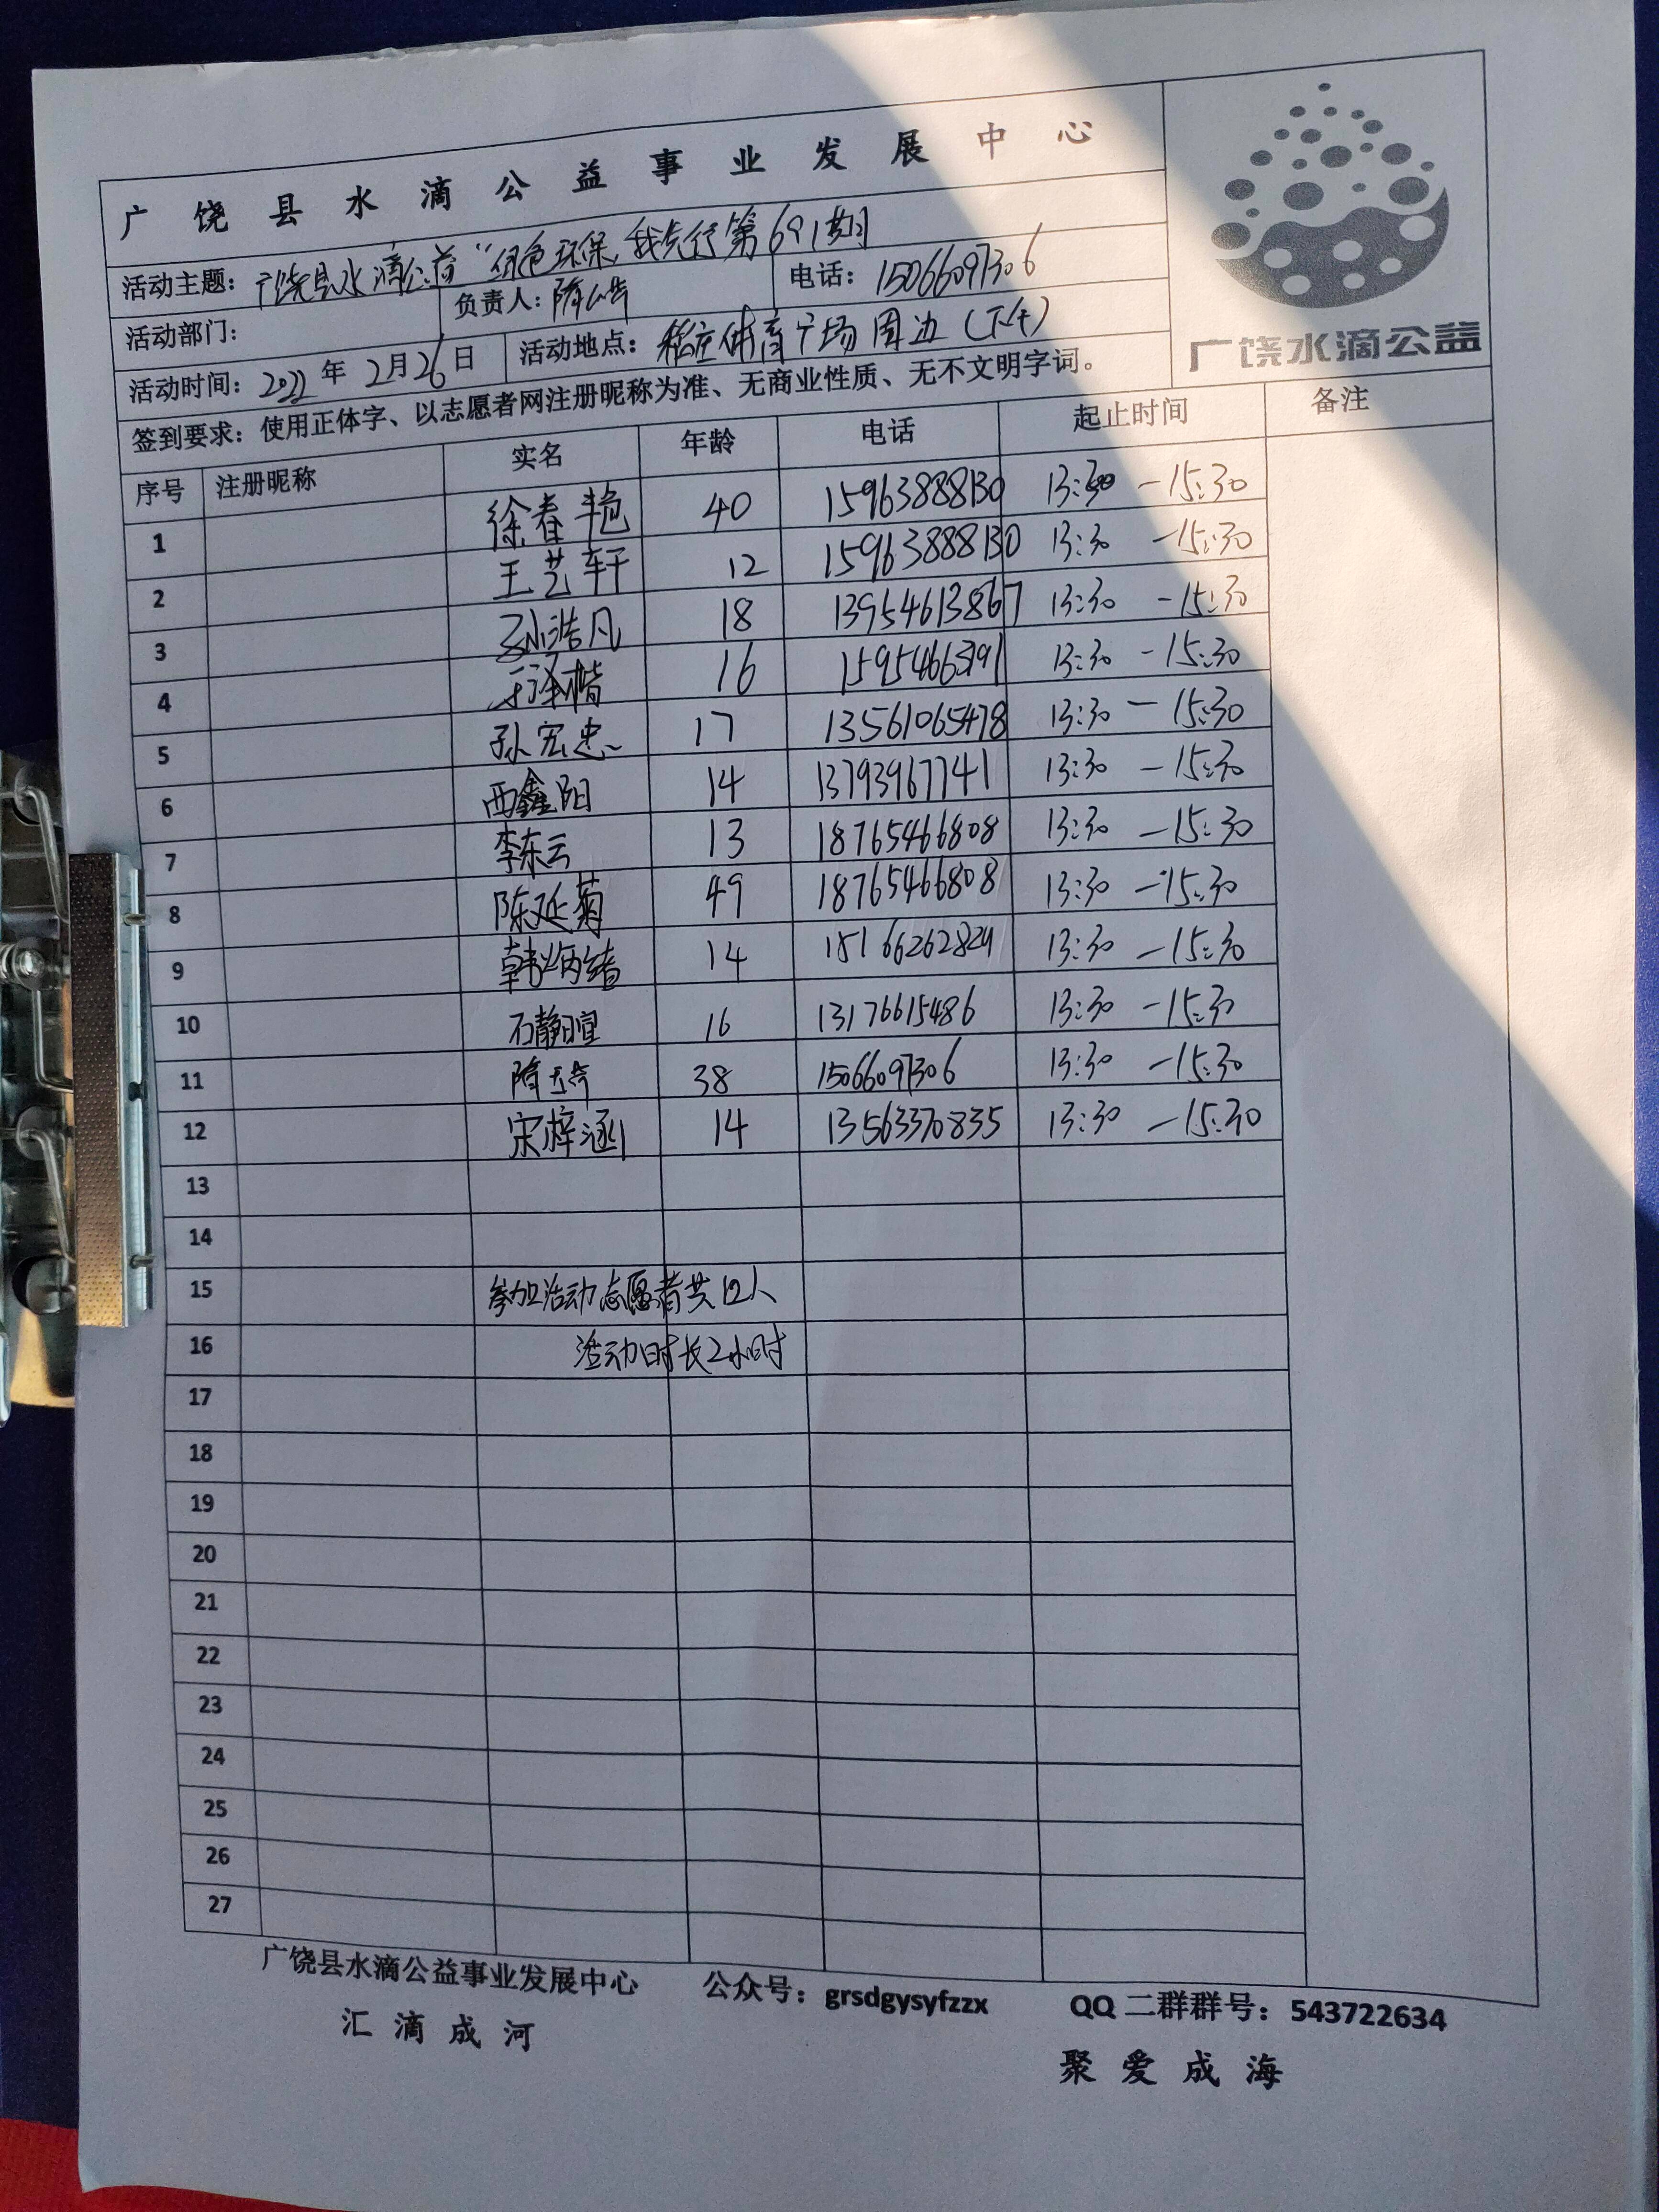 广饶县水滴公益事业发展中心
活动主题：广饶县水滴公益“绿色环保,我先行第691期
活动部门： 负责人：隋 电话：15066097306
活动时间：2022年2月26日 活动地点：稻庄体育广场周边（下午）
签到要求：使用正体字、以志愿者网注册昵称为准、无商业性质、无不文明字词。
广饶水滴公益
序号 注册昵称 实名 年龄 电话 起止时间 备注
1 徐春艳 40 15963888130 13:30 -15:30
2 王艺轩 12 15963888130 13:30 -15:30
3 孙浩凡 18 13954613867 13:30 -15:30
4 泽楷 16 13:30 -15:30
5 孙宏忠 17 13561065478 13:30 -15:30
6 西鑫阳 14 13793967741 13:30 -15:30
7 李东云 13 18765466808 13:30 -15:30
8 陈延菊 49 18765466808 13:30 -15:30
9 韩炳绪 14 13:30 -15:30
10 石静暄 16 13176615486 13:30 -15:30
11 隋 38 15066097306 13:30 -15:30
12 宋梓涵 14 13563370835 13:30 -15:30
13
14
15 参加活动志愿者共12人
16 活动时长2小时
17
18
19
20
21
22
23
24
25
26
27
广饶县水滴公益事业发展中心 公众号：grsdgysyfzzx QQ 二群群号：543722634
汇滴成河 聚爱成海